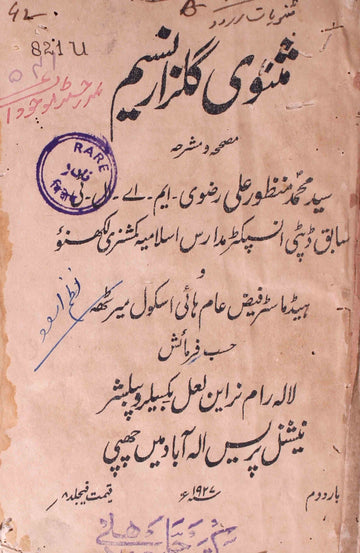 42
مثنویات اردو
821U
مثنوی گلزار نسیم
مصححہ و مشرحہ
RARE
نادر
سید محمد منظور علی رضوی۔ ایم۔ اے۔ ایل۔ ٹی
سابق ڈپٹی انسپکٹر مدارس اسلامیہ کمشنری لکھنؤ
و
ہیڈ ماسٹر فیض عام ہائی اسکول میرٹھ
نظم اردو
حسب فرمائش
لالہ رام نراین لعل بکسیلر و پبلشر
نیشنل پریس الہ آباد میں چھپی
بار دوم
۱۹۲۷ء
قیمت فیجلد ۸